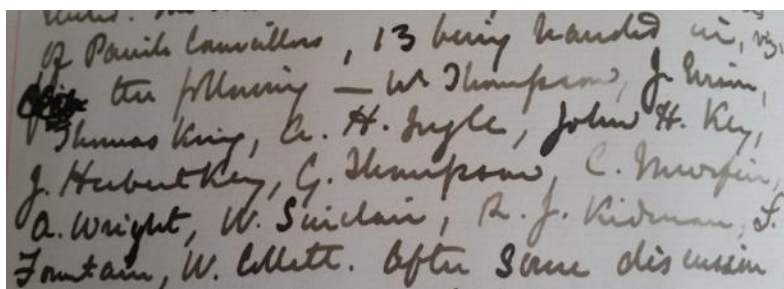 of Parish Councillors, 13 being handed in, viz.
the following — W. Thompson, J.
Thomas King, A. H. Ingle, John H. Key,
J. Hubert Key, G. Thompson, C. Murfin,
A. Wright, W. Sinclair, R. J. Kidman, S.
Fountain, W. Collett. After some discussion